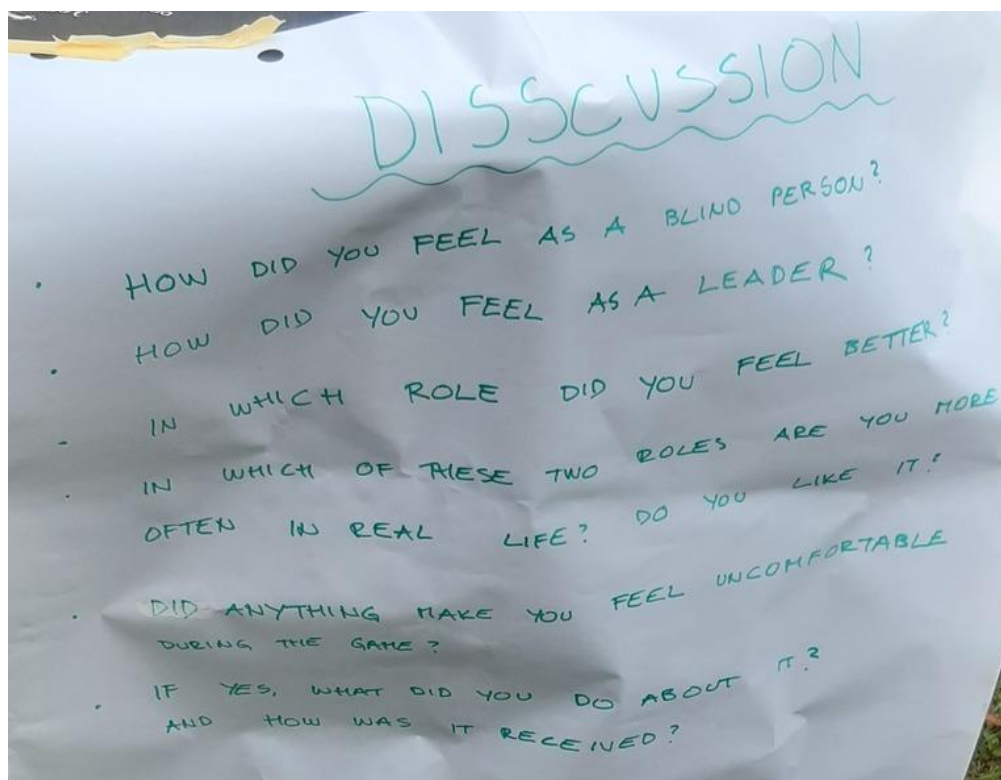 DISSCUSSION
· HOW DID YOU FEEL AS A BLIND PERSON?
· HOW DID YOU FEEL AS A LEADER?
- IN WHICH ROLE DID YOU FEEL BETTER?
· IN WHICH OF THESE TWO ROLES ARE YOU MORE
OFTEN IN REAL LIFE? DO YOU LIKE IT?
· DID ANYTHING MAKE YOU FEEL UNCOMFORTABLE
DURING THE GAME?
· IF YES, WHAT DID YOU DO ABOUT IT?
AND HOW WAS IT RECEIVED?